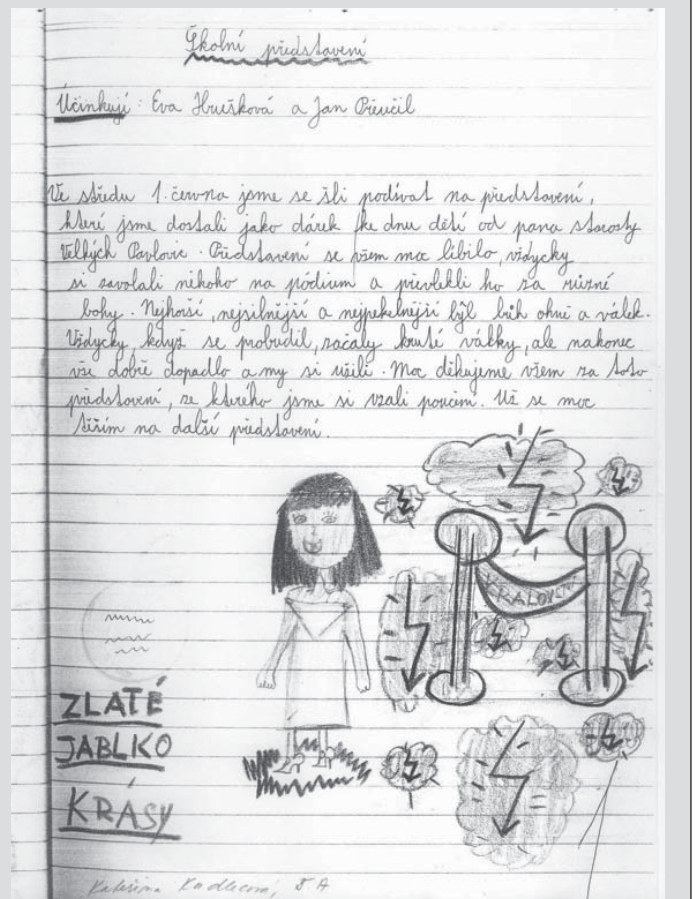 Školní představení
Účinkují: Eva Hrušková a Jan Přeučil
Ve středu 1. června jsme se šli podívat na představení,
které jsme dostali jako dárek ke dnu dětí od pana starosty
Velkých Pavlovic. Představení se všem moc líbilo, vždycky
si zavolali někoho na pódium a převlékli ho za různé
bohy. Nejhorší, nejsilnější a nejpekelnější byl bůh ohně a válek.
Vždycky, když se probudil, začaly kruté války, ale nakonec
vše dobře dopadlo a my si užili. Moc děkujeme všem za toto
představení, ze kterého jsme si vzali poučení. Už se moc
těším na další představení.
KRÁLOVST
ZLATÉ
JABLKO
KRÁSY
Kateřina Kadlecová, 5 A